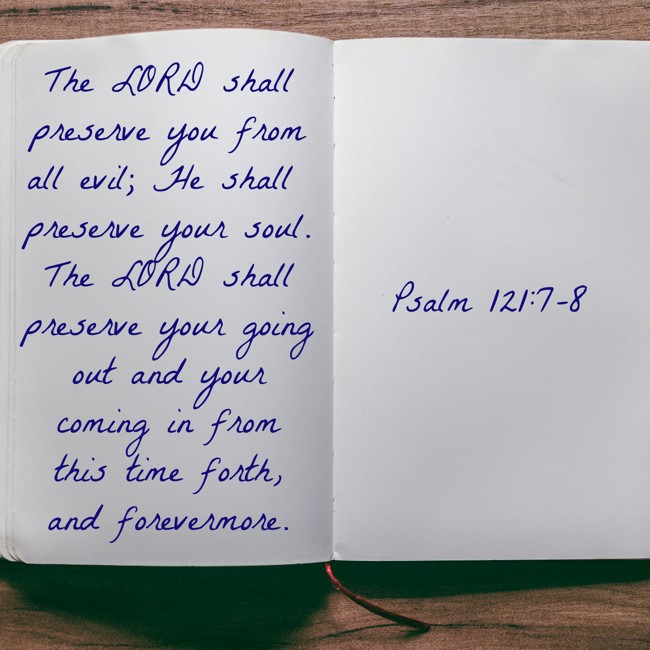 The LORD shall
preserve you from
all evil; He shall
preserve your soul.
The LORD shall
preserve your going
out and your
coming in from
this time forth,
and forevermore.
Psalm 121:7-8